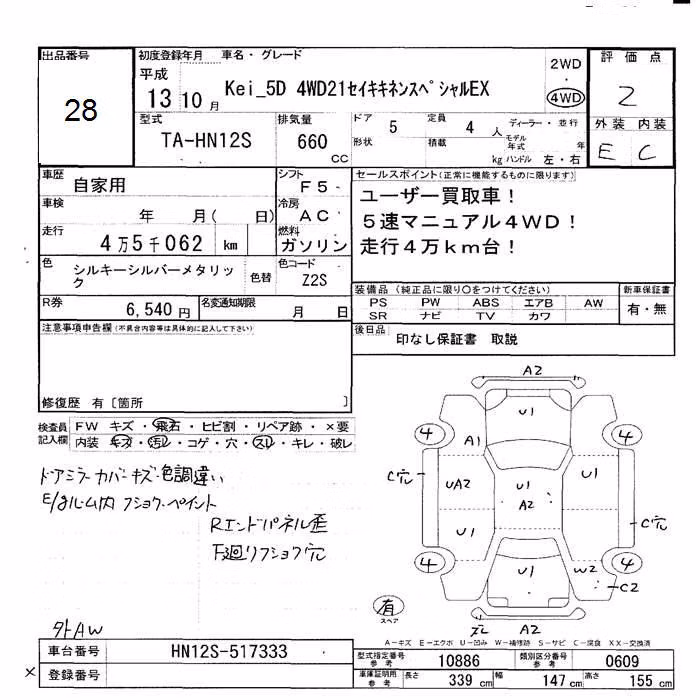 出品番号
28
初度登録年月 車名・グレード
平成
13 10 月
Kei_5D 4WD21セイキキネンスペシャルEX
2WD
・
4WD
評価点
2
型式
TA-HN12S
排気量
660 cc
ドア 5
定員 4 人
形状
積載 kg
ディーラー・並行
モデル年式 年
ハンドル 左・右
外装 内装
E C
車歴 自家用
シフト F5
車検 年 月( 日)
冷房 AC
走行 4万5千062 km
燃料 ガソリン
色 シルキーシルバーメタリック
色替
色コード Z2S
R券 6,540円
名変通知期限 月 日
セールスポイント(正常に機能するものに限ります)
ユーザー買取車!
5速マニュアル4WD!
走行4万km台!
装備品 (純正品に限り○をつけてください)
PS PW ABS エアB AW
SR ナビ TV カワ
新車保証書
有・無
後日品
印なし保証書 取説
注意事項申告欄(不具合内容等は具体的に記入して下さい)
修復歴 有〔箇所 〕
検査員記入欄
FW キズ・飛石・ヒビ割・リペア跡・×要
内装 キズ・汚レ・コゲ・穴・スレ・キレ・破レ
ドアミラーカバーキズ・色調違い
E/gルーム内 フショク・ペイント
Rエンドパネル歪
F廻リフショク穴
外AW
A2
U1
4
4
A1
C穴
UA2
U1
A2
U1
U1
C穴
4
4
U1
W2
C2
有
スペア
A2
A－キズ E－エクボ U－凹み W－補修跡 S－サビ C－腐食 XX－交換済
車台番号 HN12S-517333
× 登録番号
型式指定番号 参考 10886
類別区分番号 参考 0609
車庫証明用 参考 長さ 339 cm 幅 147 cm 高さ 155 cm